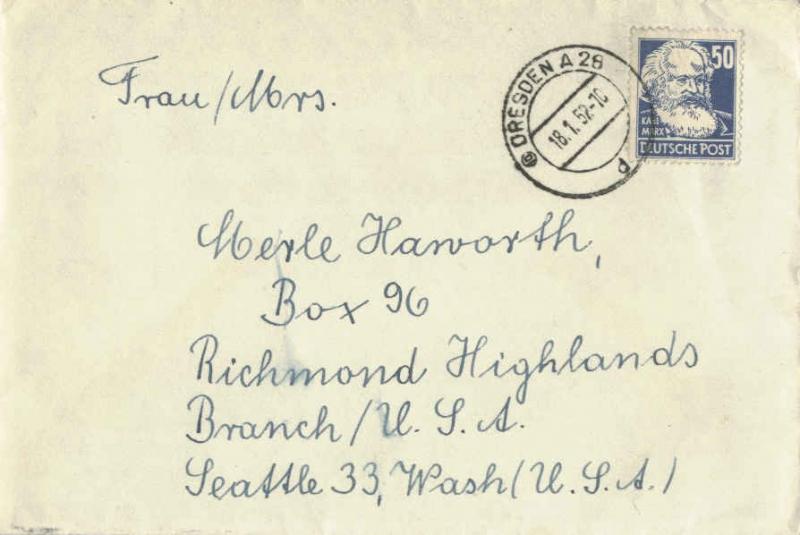 DRESDEN A 28
18.1.52-10
P
50
KARL
MARX
DEUTSCHE POST
Frau/Mrs.
Merle Haworth,
Box 96
Richmond Highlands
Branch/U.S.A.
Seattle 33, Wash (U.S.A.)